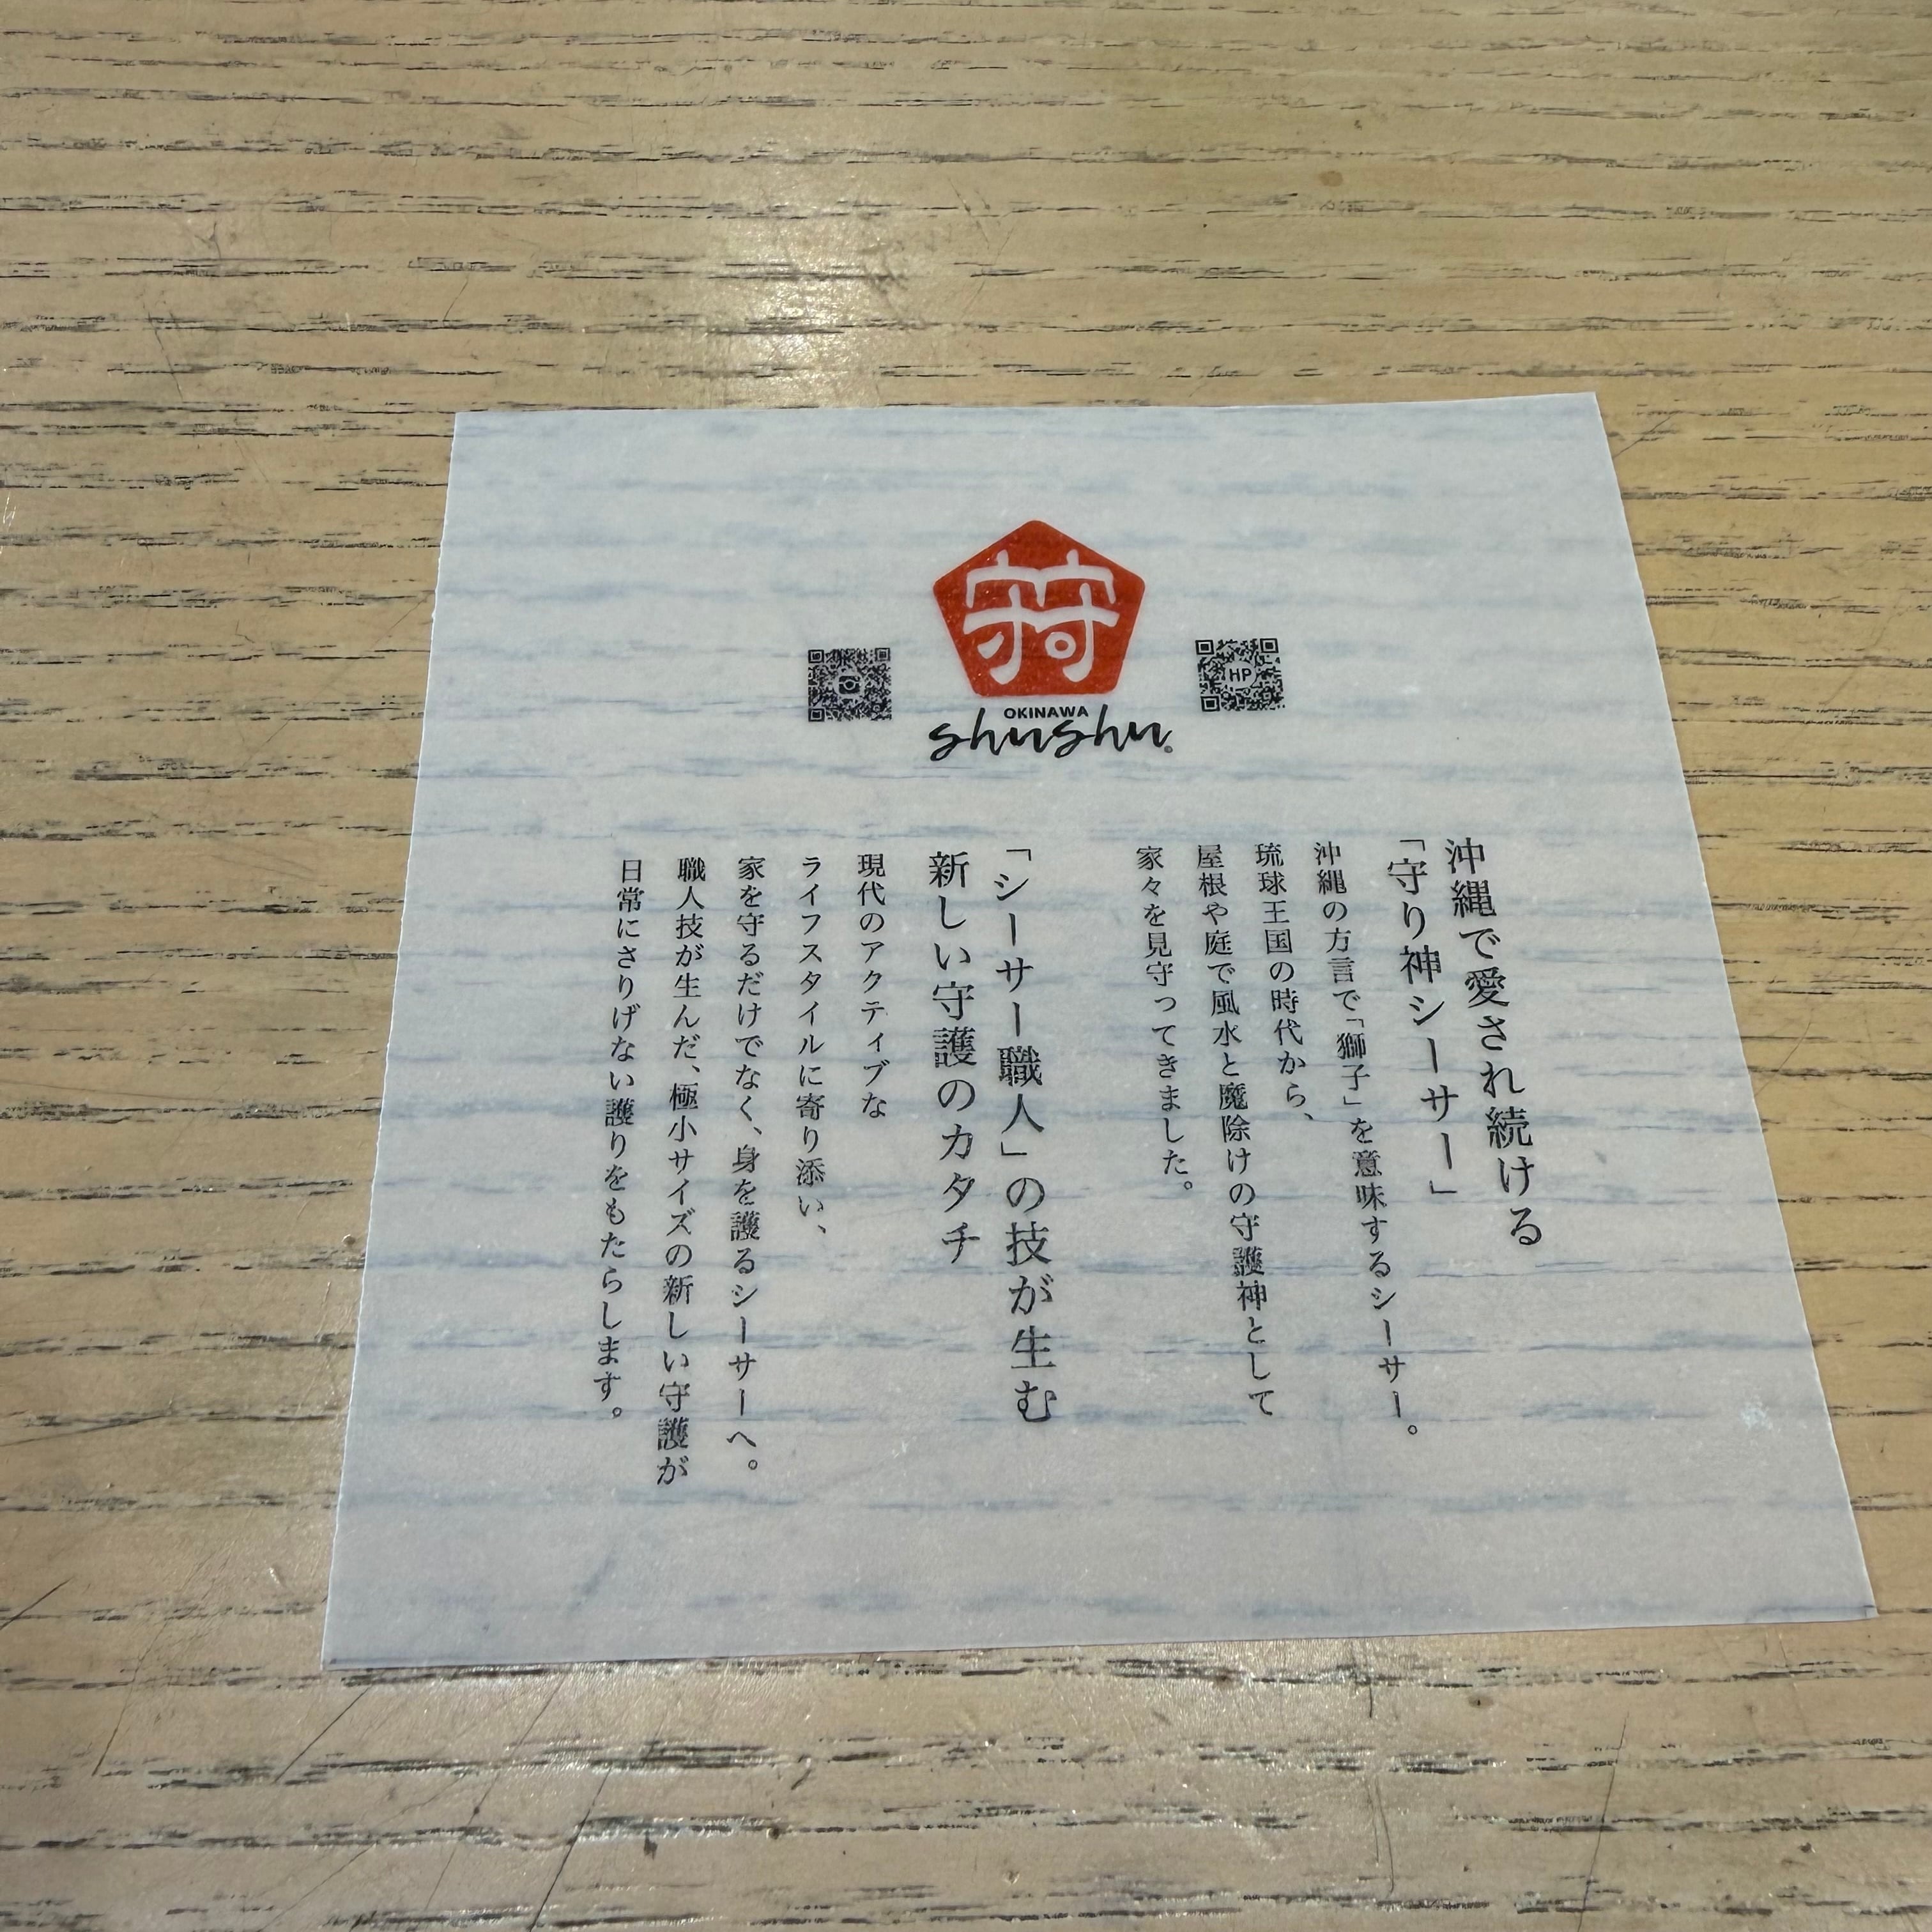 守守
OKINAWA
shushu
HP
沖縄で愛され続ける
「守り神シーサー」
沖縄の方言で「獅子」を意味するシーサー。
琉球王国の時代から、
屋根や庭で風水と魔除けの守護神として
家々を見守ってきました。
「シーサー職人」の技が生む
新しい守護のカタチ
現代のアクティブな
ライフスタイルに寄り添い、
家を守るだけでなく、身を護るシーサーへ。
職人技が生んだ、極小サイズの新しい守護が
日常にさりげない護りをもたらします。